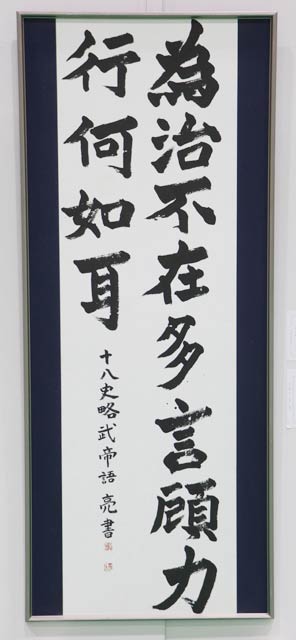 為治不在多言顧力
行何如耳
十八史略武帝語 亮書